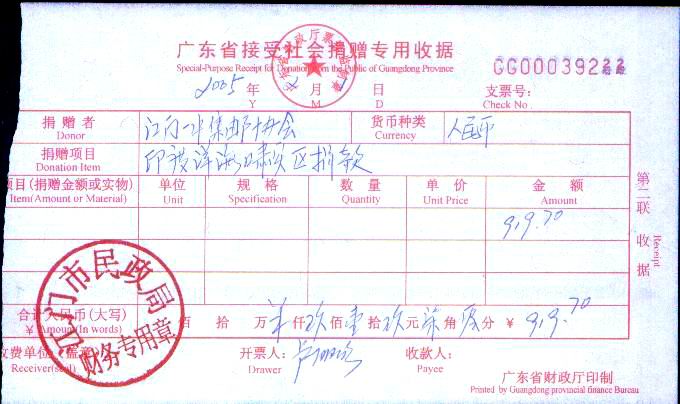 广东省接受社会捐赠专用收据
Special-Purpose Receipt for Donation from the Public of Guangdong Province
GG000392222
2005 年 月 日
Y M D
支票号:
Check No.
捐赠者 江门一中集邮协会 货币种类 人民币
Donor Currency
捐赠项目 印度洋海啸灾区捐款
Donation Item
项目(捐赠金额或实物) 单位 规格 数量 单价 金额
Item(Amount or Material) Unit Specification Quantity Unit Price Amount
919.70
合计人民币(大写) 佰 拾 万 仟 玖 佰 壹 拾 玖 元 柒 角 分 ¥ 919.70
¥ Amount(In words)
收费单位(盖章) 开票人: 收款人:
Receiver(seal) Drawer Payee
广东省财政厅印制
Printed by Guangdong provincial finance Bureau
第二联 收据
Receipt
江门市民政局
财务专用章